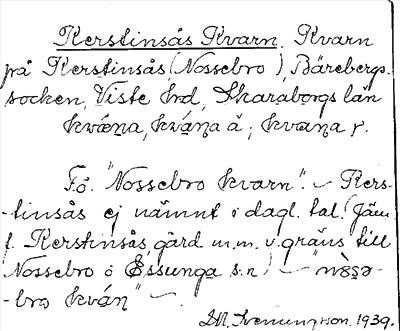 Kerstinsås Kvarn. Kvarn
på Kerstinsås (Nossebro), Bärebergs
socken, Viste hrd, Skaraborgs län
kvæṇa, kváṇa å; kvaṇa r.
Fö. "Nossebro kvarn". ~ Kers-
-tinsås ej nämnt i dagl. tal. (Jäm
f. Kerstinsås, gård m.m. v. gräns till
Nossebro ö Essunga s:n) ~
-bro kváṇ" ~
1939.